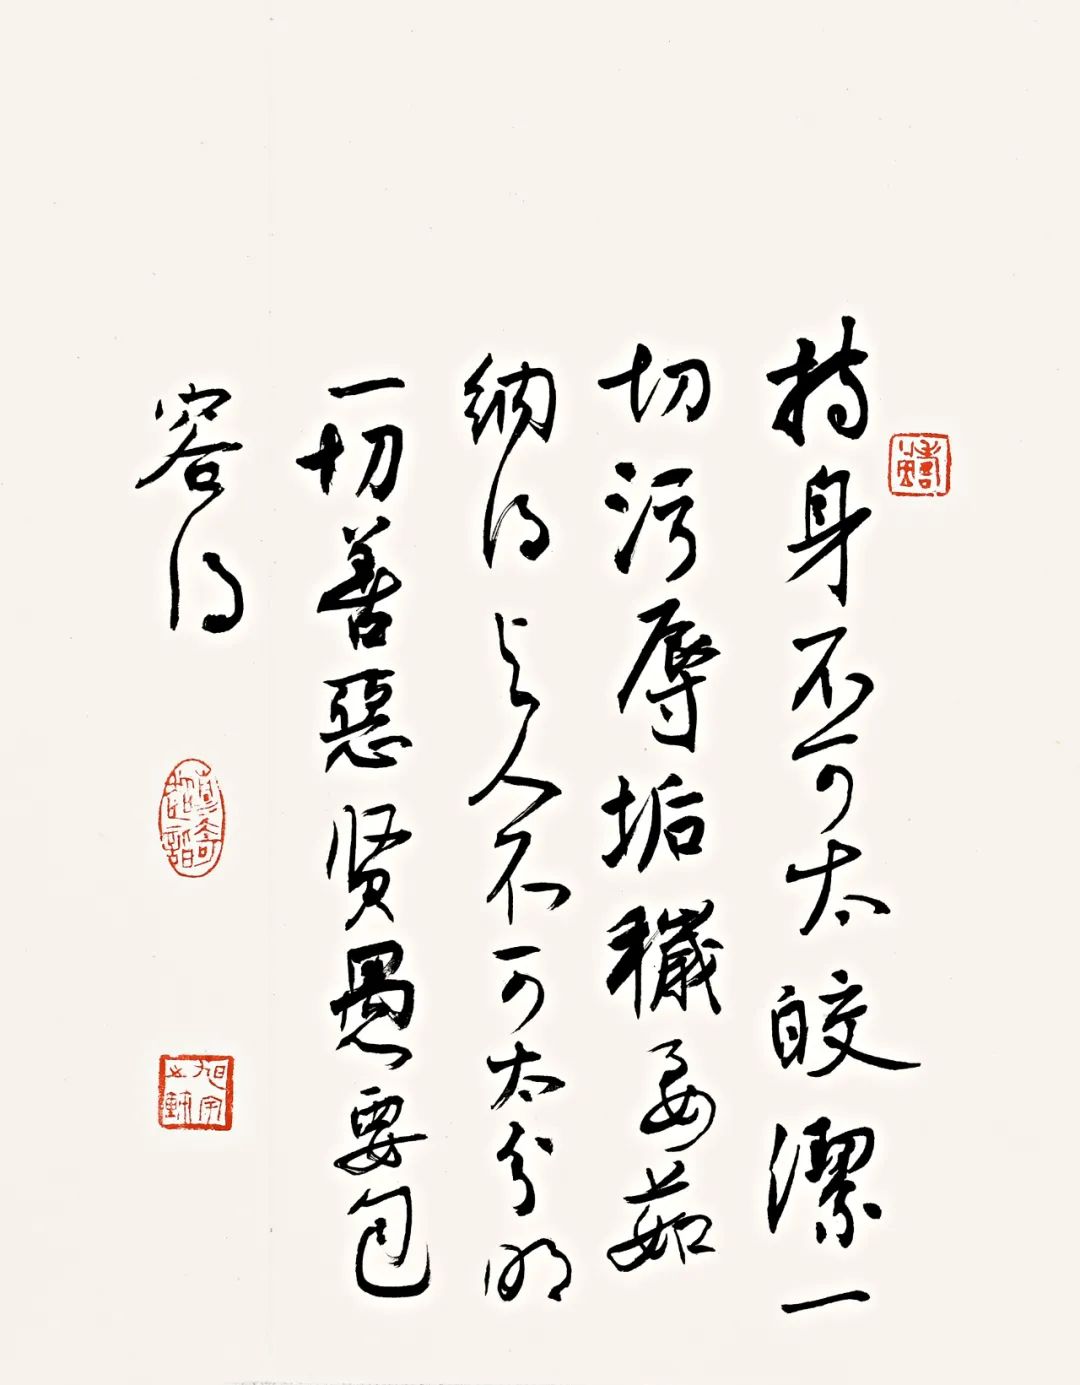 持身不可太皎潔一
切污辱垢穢要茹
納得与人不可太分明
一切善惡贤愚要包
容得
旭宇